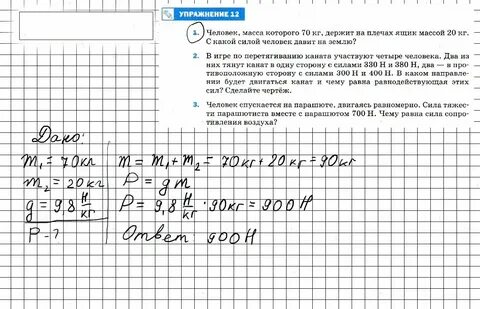 УПРАЖНЕНИЕ 12
1. Человек, масса которого 70 кг, держит на плечах ящик массой 20 кг.
С какой силой человек давит на землю?
2. В игре по перетягиванию каната участвуют четыре человека. Два из
них тянут канат в одну сторону с силами 330 Н и 380 Н, два — в про-
тивоположную сторону с силами 300 Н и 400 Н. В каком направлении
будет двигаться канат и чему равна равнодействующая этих
сил? Сделайте чертёж.
3. Человек спускается на парашюте, двигаясь равномерно. Сила тяжес-
ти парашютиста вместе с парашютом 700 Н. Чему равна сила сопро-
тивления воздуха?
Дано:
m₁ = 70 кг
m₂ = 20 кг
g = 9,8 Н/кг
P - ?
m = m₁ + m₂ = 70 кг + 20 кг = 90 кг
P = g m
P = 9,8 Н/кг · 90 кг = 900 Н
Ответ: 900 Н